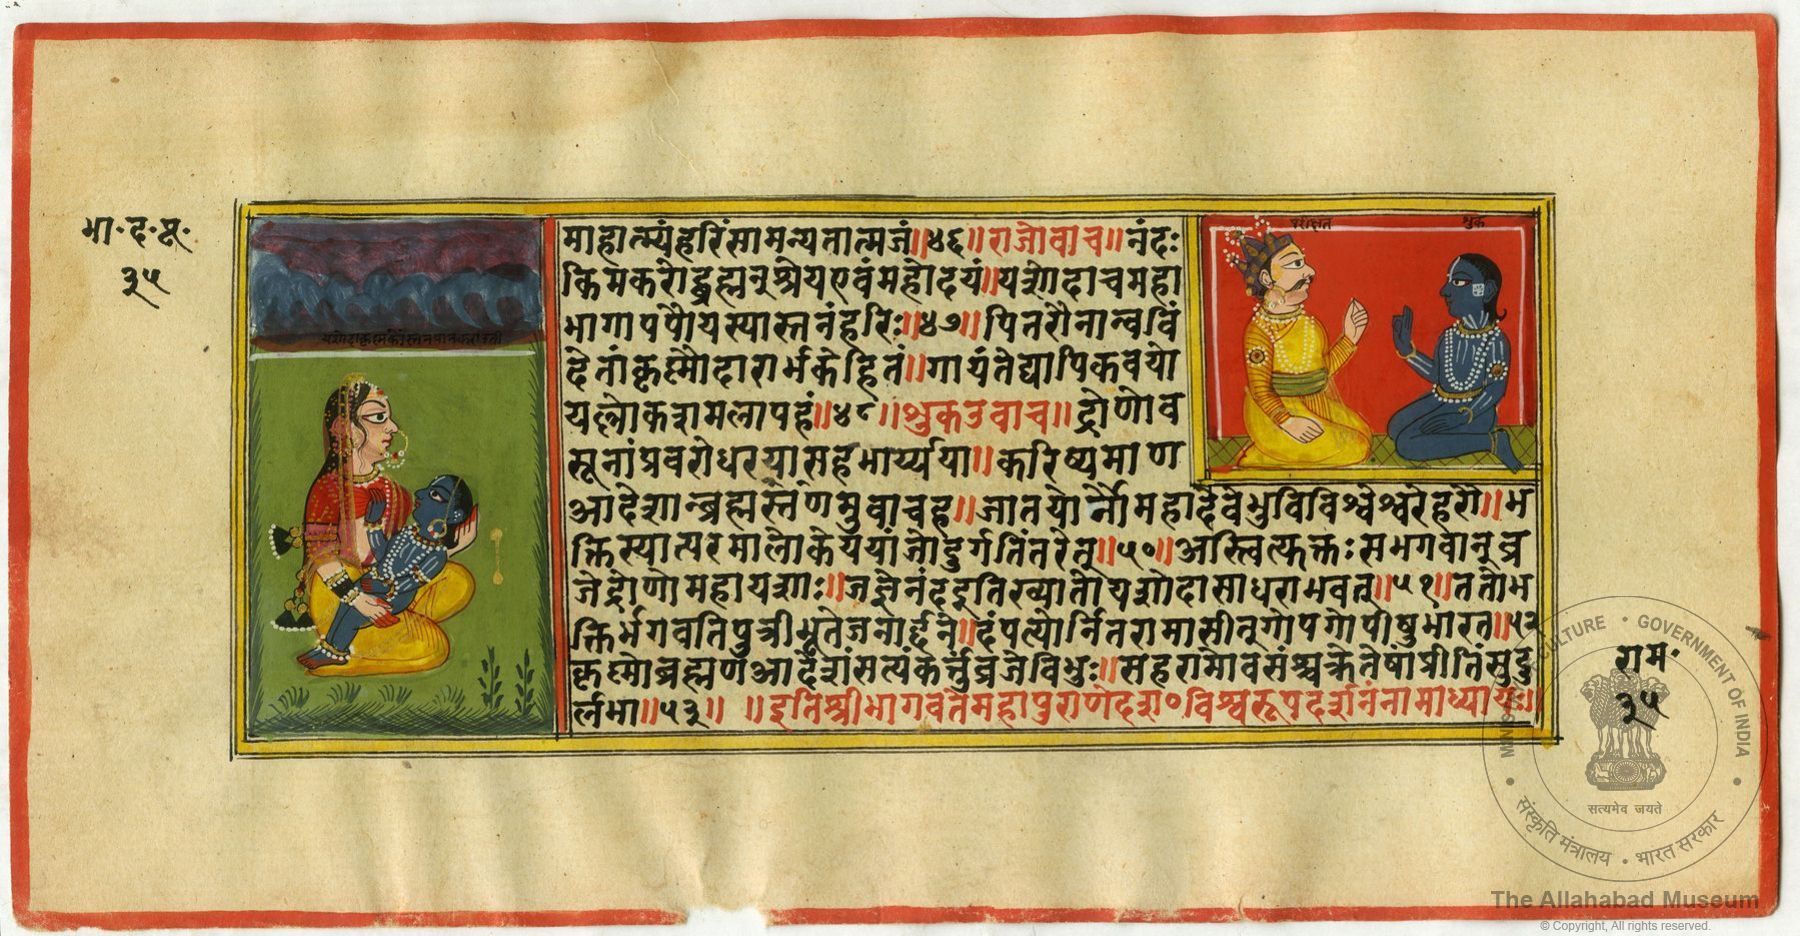 भा॰द॰पू॰
३५
यशोदाकृष्णकौस्तनपानकरावती
परीक्षत
शुक
माहात्म्यंहरिंसामन्यतात्मजं॥४६॥राजोवाच॥नंदः
किमकरोद्ब्रह्मन्श्रेयएवंमहोदयं॥यशोदाचमहा
भागापपौयस्यास्तनंहरिः॥४७॥पितरौनान्वविं
देतांकृष्णोदारार्भकेहितं॥गायंतेद्यापिकवयो
यल्लोकशमलापहं॥४८॥शुकउवाच॥द्रोणोव
सूनांप्रवरोधरयासहभार्य्यया॥करिष्यमाण
आदेशान्ब्रह्मस्तंणमुवाचह॥जातयोर्नौमहादेवेभुविविश्वेश्वरेहरौ॥भ
क्तिस्यात्परमालोकेययांजोदुर्गतिंतरेत्॥५०॥अस्त्वित्फक्तःसभगवान्व्र
जेद्रोणोमहायशाः॥जज्ञेनंदइतिख्यातोयशोदासाधराभवत्॥५१॥ततोभ
क्तिर्भगवतिपुत्रीभूतेजनार्द्दने॥दंपत्योर्नितरामासीत्गोपगोपीषुभारत॥५२
कृष्णोब्रह्मणआदेशंसत्यंकर्त्तुंव्रजेविभुः॥सहरामोवसंश्चक्रेतेषांप्रीतिंसुदु
र्लभा॥५३॥ ॥इतिश्रीभागवतेमहापुराणेदश॰विश्वरूपदर्शनंनामाध्यायः॥
राम॰
३५
MINISTRY OF CULTURE • GOVERNMENT OF INDIA
सत्यमेव जयते
संस्कृति मंत्रालय • भारत सरकार
The Allahabad Museum
© Copyright, All rights reserved.